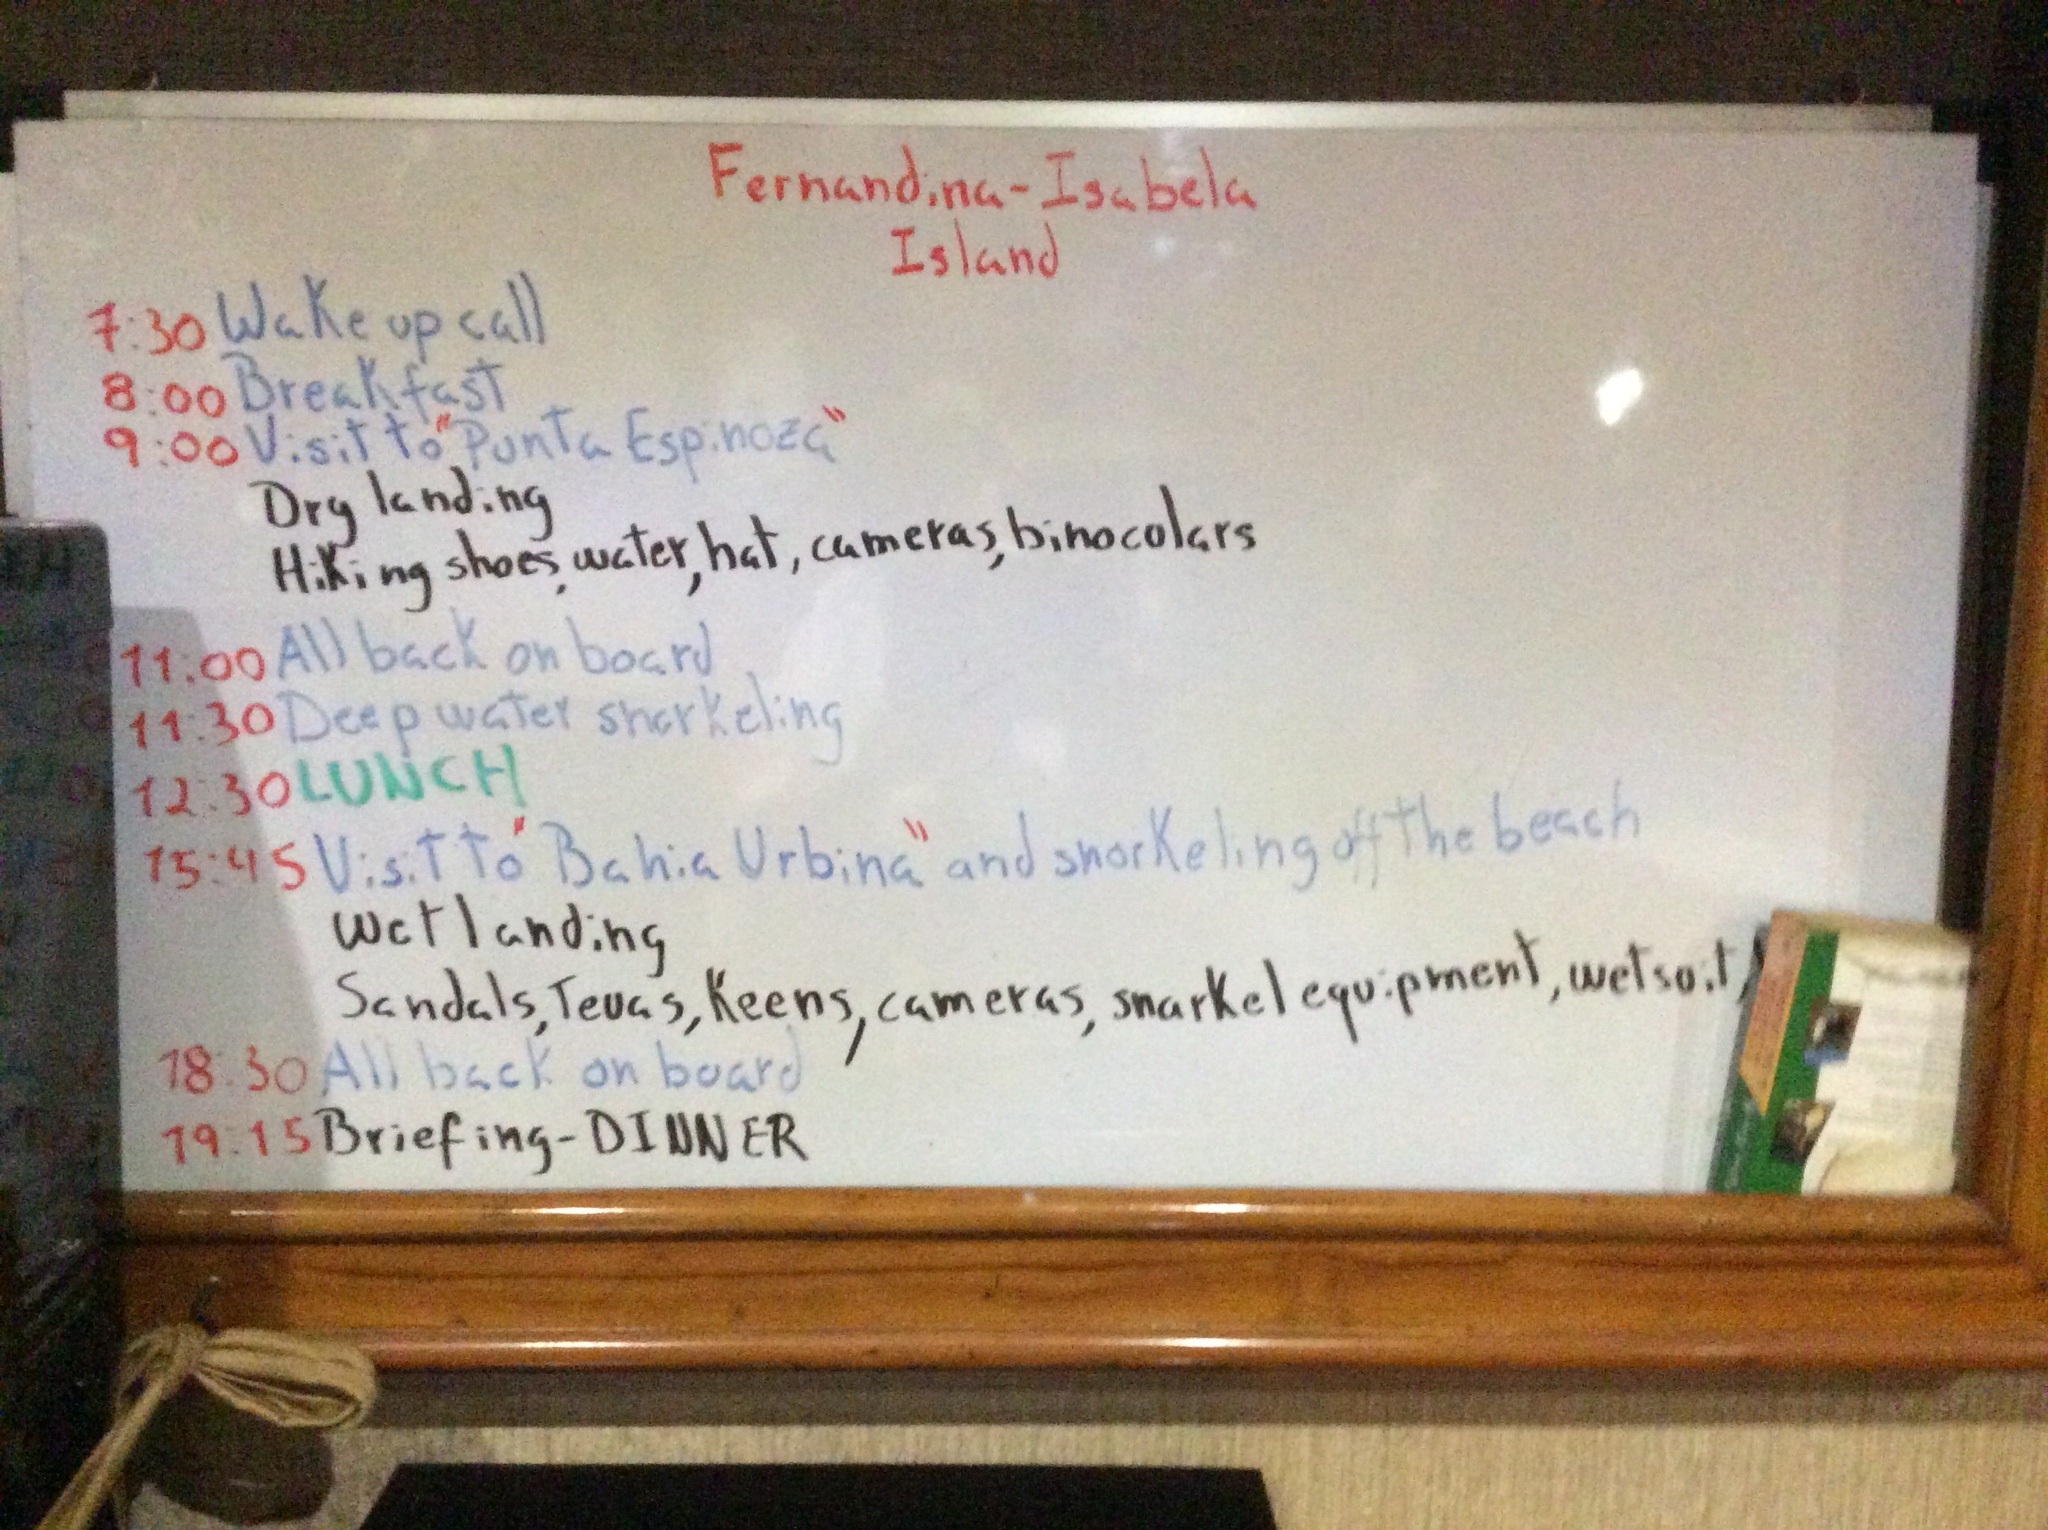 Fernandina-Isabela
Island
7:30 Wake up call
8:00 Breakfast
9:00 Visit to "Punta Espinoza"
Dry landing
Hiking shoes, water, hat, cameras, binocolars
11:00 All back on board
11:30 Deep water snorkeling
12:30 LUNCH
15:45 Visit to "Bahia Urbina" and snorkeling off the beach
Wet landing
Sandals, Tevas, Keens, cameras, snorkel equipment, wetsuit
18:30 All back on board
19:15 Briefing-DINNER